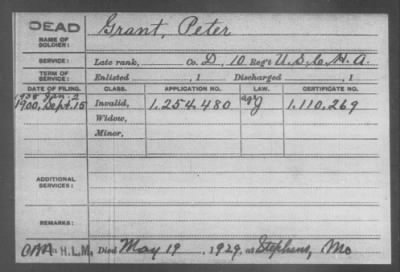 DEAD Grant, Peter
NAME OF SOLDIER:
SERVICE: Late rank, Co. D, 10 Reg't U.S.C.H.A.
TERM OF SERVICE: Enlisted , 1 Discharged , 1
DATE OF FILING. CLASS. APPLICATION NO. LAW. CERTIFICATE NO.
1938 Jan-3
1900, Sept. 15 Invalid, 1.254.480 J 1.110.269
Widow,
Minor,
ADDITIONAL SERVICES:
REMARKS:
H.L.M. Died May 19, 1929, at Stephens, Mo